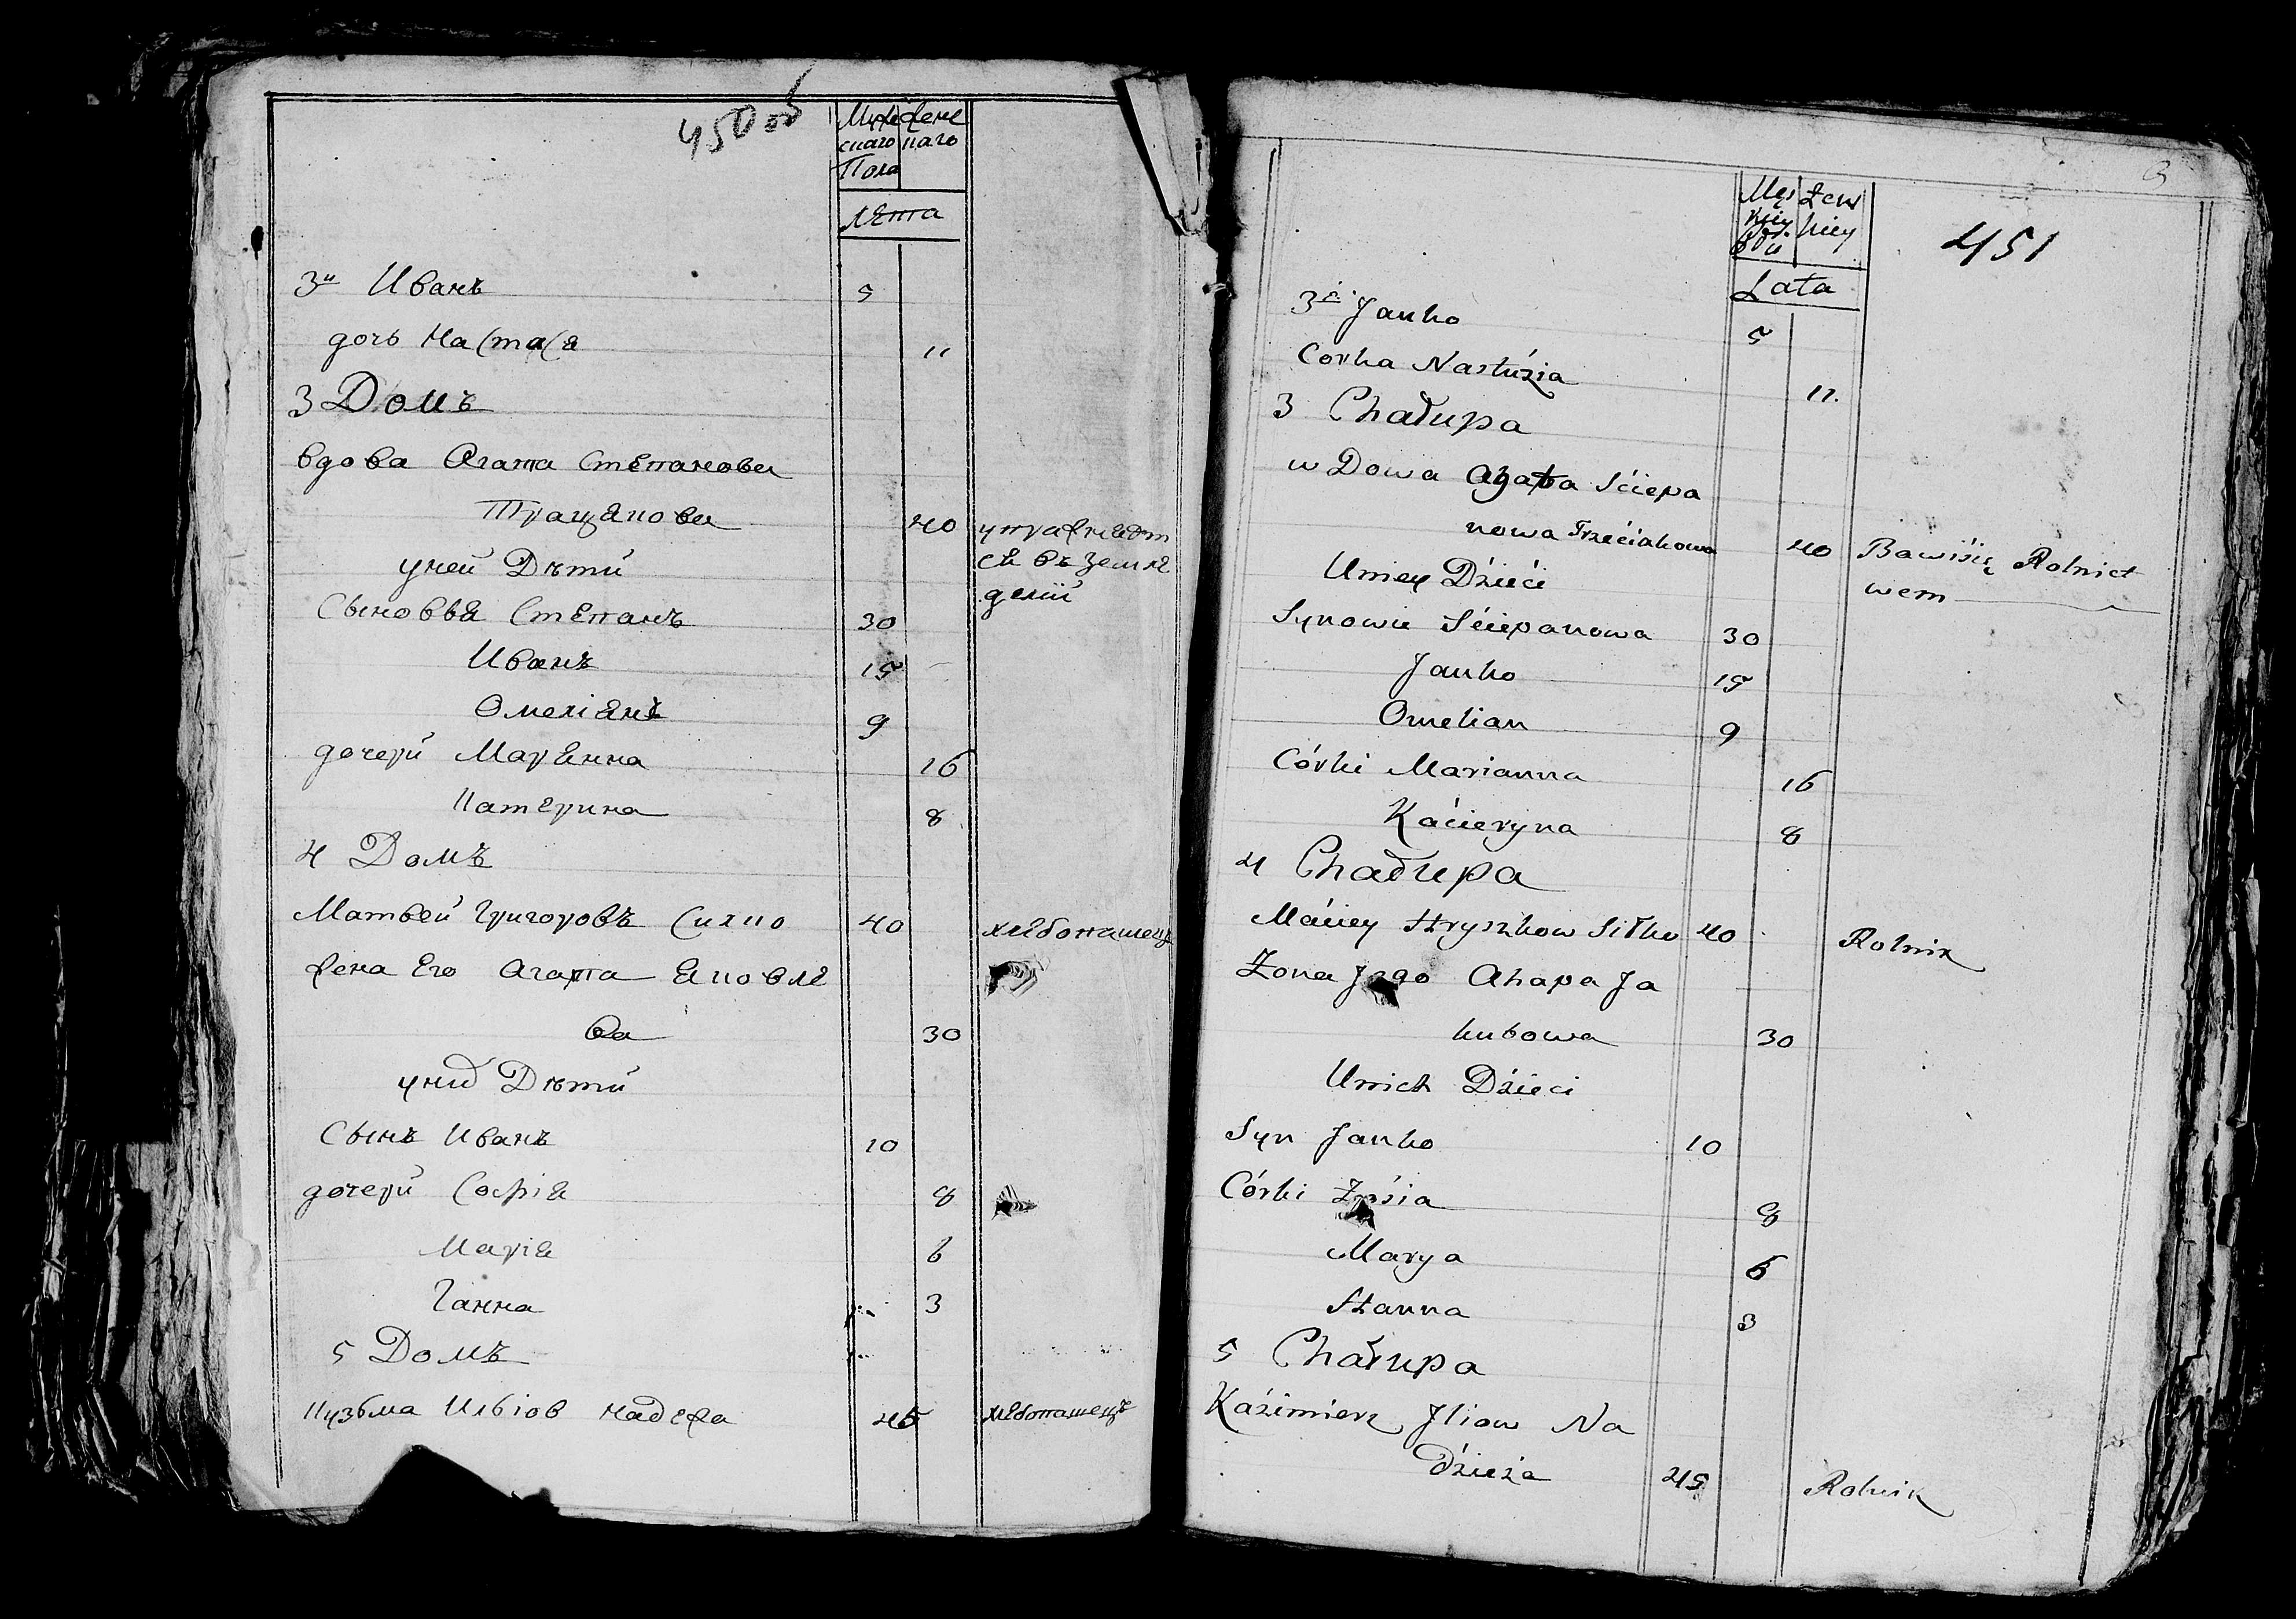 450 об
Мужескаго Женскаго
Пола
лѣта
3й Иванъ 5
дочь Настася 11
3 Домъ
вдова Агапа Степанова
Трацякова 40 упражняет
ся въ земле
делій
у ней Дѣти
Сыновья Степанъ 30
Иванъ 15
Омеліянъ 9
дочери Марянна 16
Катерина 8
4 Домъ
Матвей Григоровъ Силко 40 хлебопашецъ
Жена Его Агапа Яковле
ва 30
у них Дѣти
Сынъ Иванъ 10
дочери Софія 8
Марія 6
Ганна 3
5 Домъ
Кузьма Ильіов Надежа 45 хлебопашецъ
3
451
Męskiey Żenskiey
Lata
3ci Janko 5
Corka Nastúzia 11.
3 Chałupa
w Dowa Agapa Sciepa
nowa Trzeciakowa 40 Bawiśię Rolnict
wem
Uniey Dźieći
Synowie Sciepanowa 30
Janko 15
Omelian 9
Córki Marianna 16
Kácieryna 8
4 Chałupa
Máciey Hryszkow Siłko 40 Rolnik
Żona Jego Ahapa Ja
kubowa 30
Unich Dźieci
Syn Janko 10
Córki Zosia 8
Marya 6
Hanna 3
5 Chałupa
Kaźimierz Jliow Na
dzieża 45 Rolnik